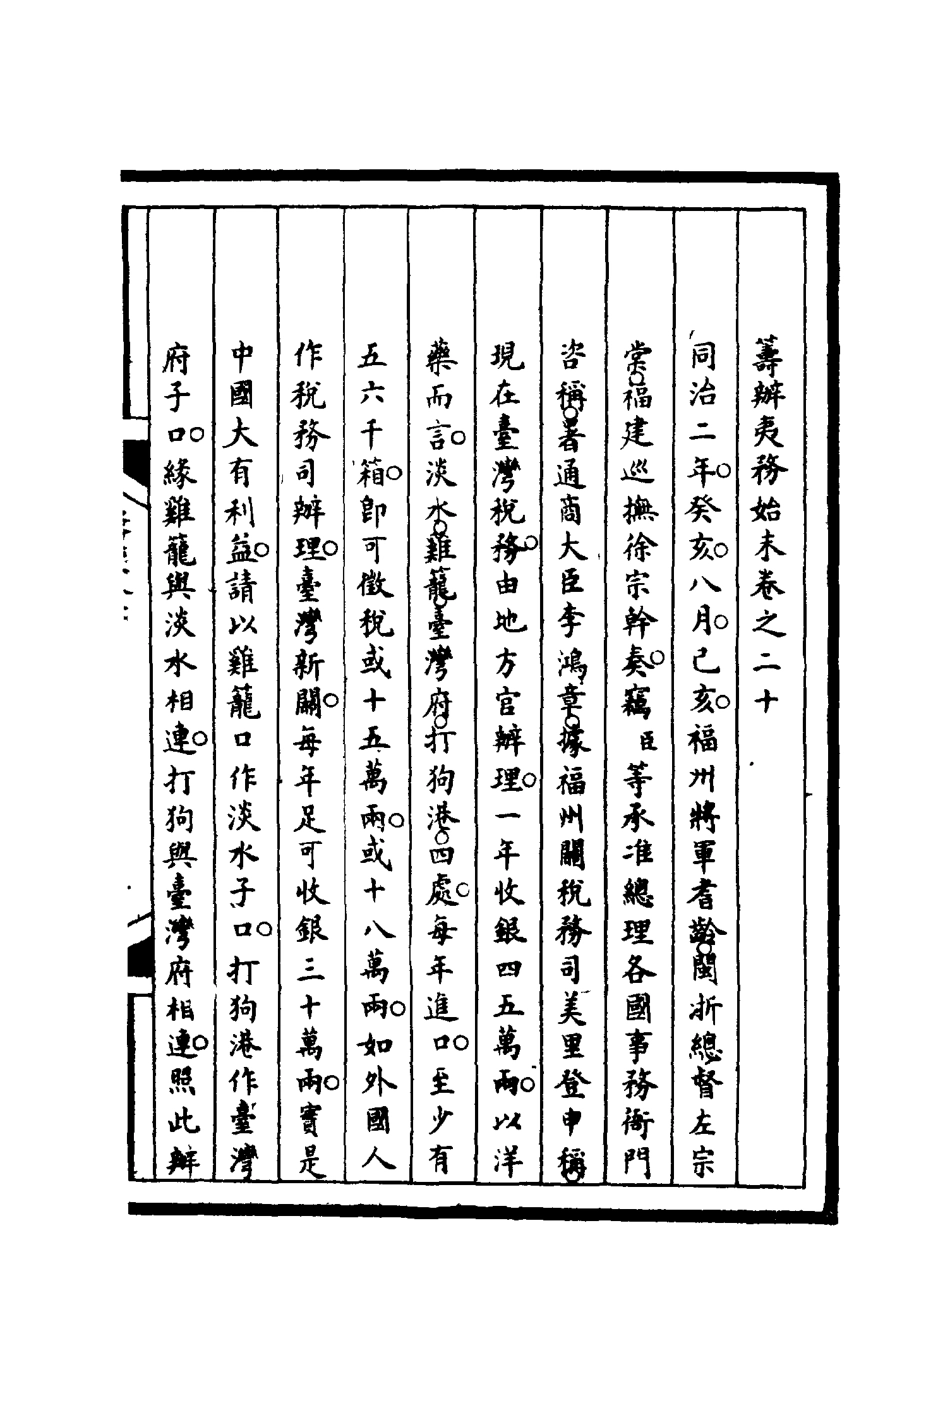 籌辦夷務始末卷之二十
同治二年。癸亥。八月。己亥。福州將軍耆齡。閩浙總督左宗
棠。福建巡撫徐宗幹奏。竊臣等承准總理各國事務衙門
咨稱。署通商大臣李鴻章。據福州關稅務司美里登申稱。
現在臺灣稅務。由地方官辦理。一年收銀四五萬兩。以洋
藥而言。淡水。雞籠。臺灣府。打狗港。四處。每年進口。至少有
五六千箱。即可徵稅或十五萬兩。或十八萬兩。如外國人
作稅務司辦理。臺灣新關。每年足可收銀三十萬兩。實是
中國大有利益。請以雞籠口作淡水子口。打狗港作臺灣
府子口。緣雞籠與淡水相連。打狗與臺灣府相連。照此辦